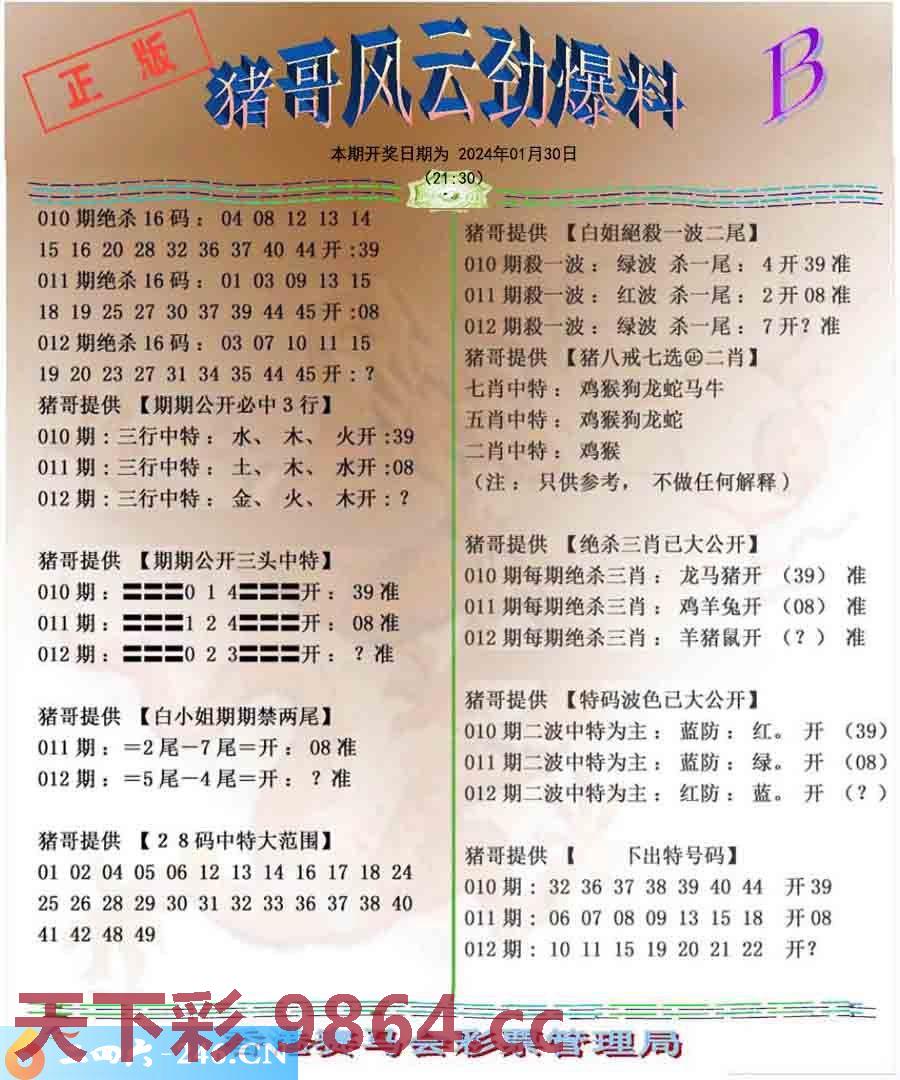 正版
猪哥风云劲爆料
B
本期开奖日期为 2024年01月30日
(21:30)
010期绝杀16码：04 08 12 13 14
15 16 20 28 32 36 37 40 44开:39
011期绝杀16码：01 03 09 13 15
18 19 25 27 30 37 39 44 45开:08
012期绝杀16码：03 07 10 11 15
19 20 23 27 31 34 35 44 45开:?
猪哥提供【期期公开必中3行】
010期:三行中特：水、木、火开:39
011期:三行中特：土、木、水开:08
012期:三行中特：金、火、木开:?
猪哥提供【期期公开三头中特】
010期:〓〓〓0 1 4〓〓〓开：39准
011期:〓〓〓1 2 4〓〓〓开：08准
012期:〓〓〓0 2 3〓〓〓开：？准
猪哥提供【白小姐期期禁两尾】
011期:＝2尾－7尾＝开：08准
012期:＝5尾－4尾＝开：？准
猪哥提供【２８码中特大范围】
01 02 04 05 06 12 13 14 16 17 18 24
25 26 28 29 30 31 32 33 36 37 38 40
41 42 48 49
猪哥提供【白姐絕殺一波二尾】
010期殺一波：绿波 杀一尾：4开39准
011期殺一波：红波 杀一尾：2开08准
012期殺一波：绿波 杀一尾：7开？准
猪哥提供【猪八戒七选㊣二肖】
七肖中特：鸡猴狗龙蛇马牛
五肖中特：鸡猴狗龙蛇
二肖中特：鸡猴
（注：只供参考，不做任何解释）
猪哥提供【绝杀三肖已大公开】
010期每期绝杀三肖：龙马猪开（39）准
011期每期绝杀三肖：鸡羊兔开（08）准
012期每期绝杀三肖：羊猪鼠开（？）准
猪哥提供【特码波色已大公开】
010期二波中特为主：蓝防：红。开（39）
011期二波中特为主：蓝防：绿。开（08）
012期二波中特为主：红防：蓝。开（？）
猪哥提供【 下出特号码】
010期：32 36 37 38 39 40 44 开39
011期：06 07 08 09 13 15 18 开08
012期：10 11 15 19 20 21 22 开?
天下彩 9864.cc
二四六-246.CN
赛马会彩票管理局